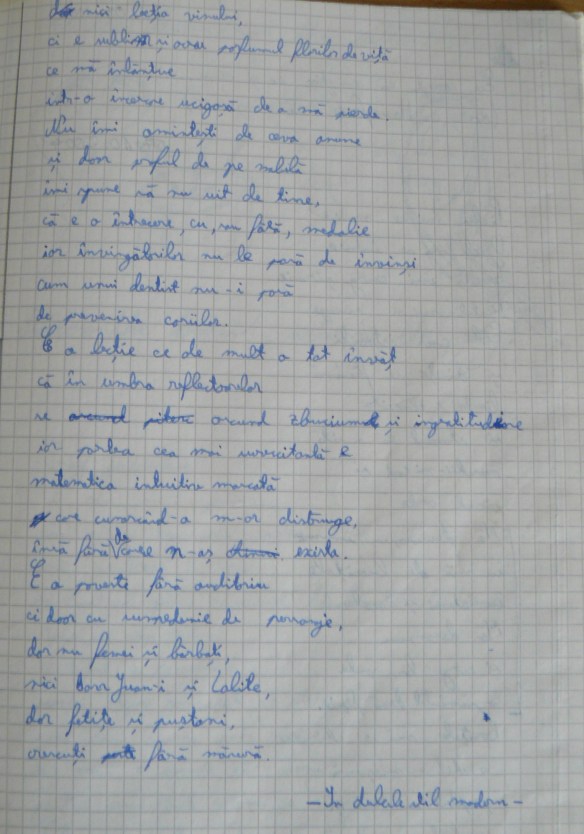 nici lecția vinului,
ci e sublim și poate parfumul florilor de viță
ce mă înlănțuie
într-o încercare ucigașă de a mă pierde.
Nu îmi amintești de ceva anume
și doar profil de pe medalie
îmi spune să nu uit de tine,
că e o întrecere, cu, sau fără, medalie
iar învingătorilor nu le pasă de învinși
cum unui dentist nu-i pasă
de prevenirea cariilor.
E o lecție ce de mult o tot învăț
că în umbra reflectoarelor
se ascund zbucium și ingratitudine
iar partea cea mai surescitantă e
matematica intuitiv marcată
care cunoscând-o m-ar distruge,
însă fără de care n-aș exista.
E o poveste fără echilibru
ci doar cu supradenie de personaje,
dar nu femei și bărbați,
nici Don Juan-i și Lolite,
dar fetițe și puștani,
crescuți fără măsură.
- În dulcele stil modern -